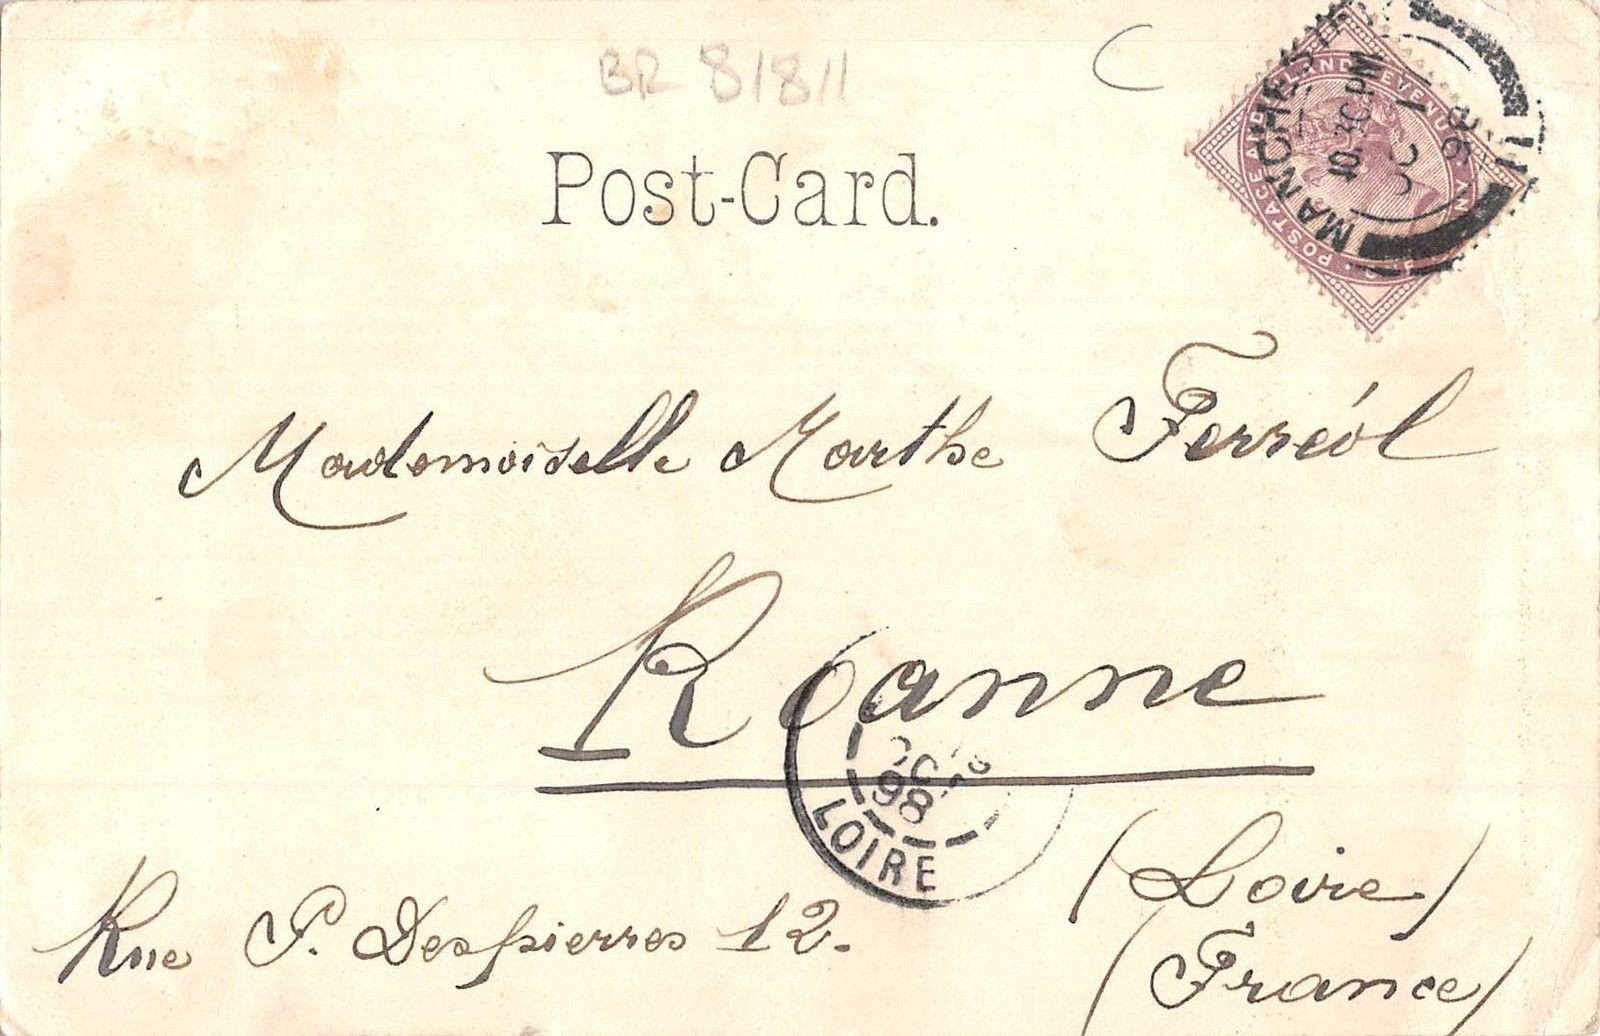 BR 81811
C
Post-Card.
POSTAGE AND INLAND REVENUE
MANCHESTER
10.30 PM
OC 1
98
Mademoiselle Marthe Ferréol
Roanne
OCT
98
LOIRE
(Loire)
Rue P. Despierres 12.
(France)